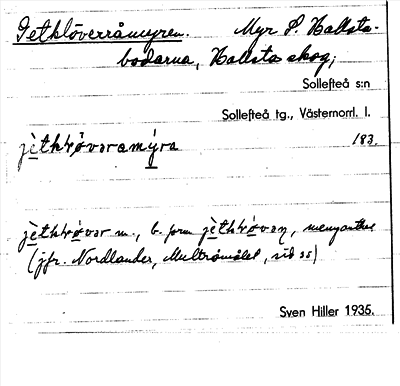 Jetklöverråmyren. Myr S. Hallsta-
bodarna, Hallsta skog;
Sollefteå s:n
Sollefteå tg., Västernorrl. l.
183.
m., b. form menyanthes
(jfr. Nordlander, Multråmålet, sid 35)
Sven Hiller 1935.